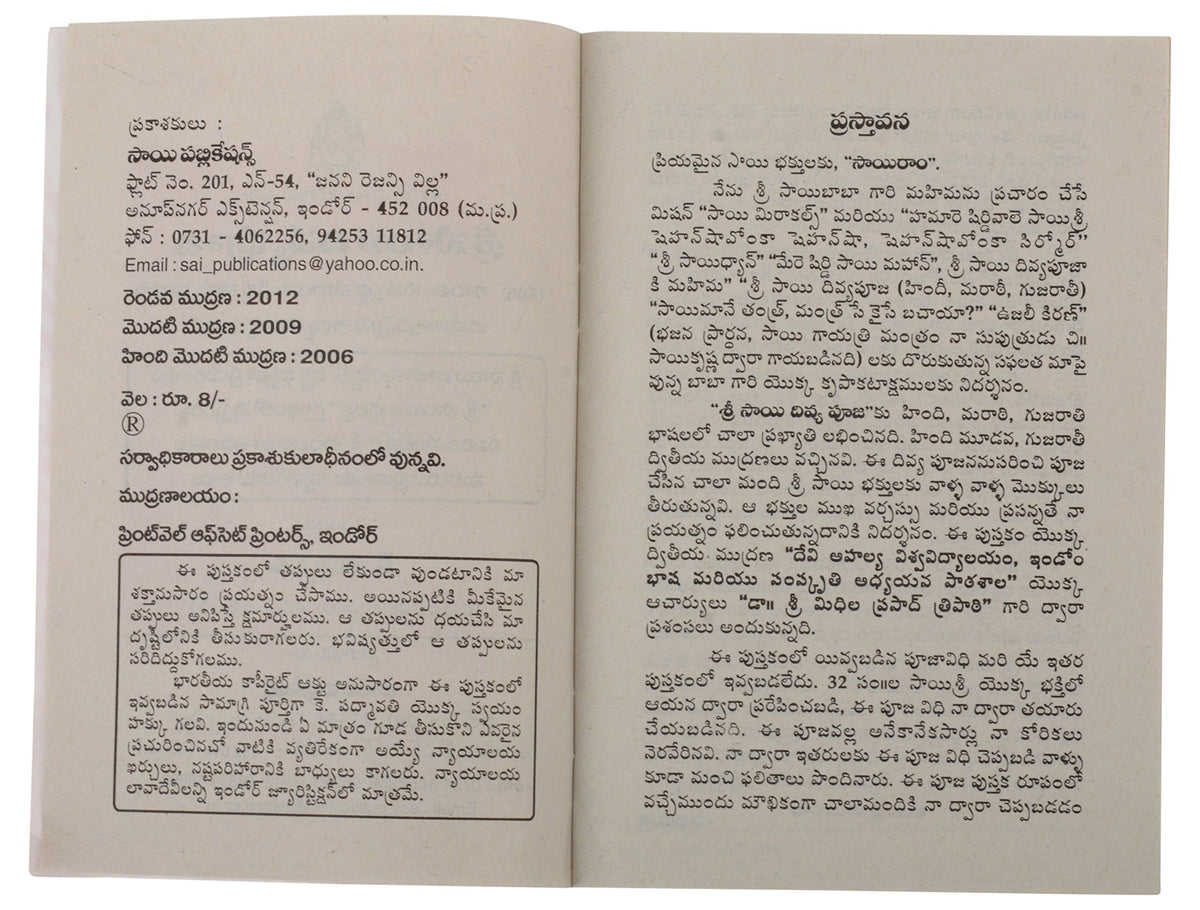 ప్రకాశకులు :
సాయి పబ్లికేషన్స్
ఫ్లాట్ నెం. 201, ఎన్-54, “జనని రెజన్సి విల్ల”
అనూప్‌నగర్ ఎక్స్‌టెన్షన్, ఇండోర్ - 452 008 (మ.ప్ర.)
ఫోన్ : 0731 - 4062256, 94253 11812
Email : sai_publications@yahoo.co.in.
రెండవ ముద్రణ : 2012
మొదటి ముద్రణ : 2009
హింది మొదటి ముద్రణ : 2006
వెల : రూ. 8/-
®
సర్వాధికారాలు ప్రకాశుకులాధీనంలో వున్నవి.
ముద్రణాలయం :
ప్రింట్‌వెల్ ఆఫ్‌సెట్ ప్రింటర్స్, ఇండోర్
ఈ పుస్తకంలో తప్పులు లేకుండా వుండటానికి మా
శక్తానుసారం ప్రయత్నం చేసాము. అయినప్పటికి మీకేమైన
తప్పులు అనిపిస్తే క్షమార్హులము. ఆ తప్పులను దయచేసి మా
దృష్టిలోనికి తీసుకురాగలరు. భవిష్యత్తులో ఆ తప్పులను
సరిదిద్దుకోగలము.
భారతీయ కాపీరైట్ ఆక్టు అనుసారంగా ఈ పుస్తకంలో
ఇవ్వబడిన సామాగ్రి పూర్తిగా కె. పద్మావతి యొక్క స్వయం
హక్కు గలవి. ఇందునుండి ఏ మాత్రం గూడ తీసుకొని ఎవరైన
ప్రచురించినచో వాటికి వ్యతిరేకంగా అయ్యే న్యాయాలయ
ఖర్చులు, నష్టపరిహారానికి బాధ్యులు కాగలరు. న్యాయాలయ
లావాదేవీలన్ని ఇండోర్ జ్యూరిస్టిక్షన్‌లో మాత్రమే.
ప్రస్తావన
ప్రియమైన సాయి భక్తులకు, “సాయిరాం”.
నేను శ్రీ సాయిబాబా గారి మహిమను ప్రచారం చేసే
మిషన్ “సాయి మిరాకల్స్” మరియు “హమారె షిర్డివాలె సాయిశ్రీ
షెహన్‌షావోంకా షెహన్‌షా, షెహన్‌షావోంకా సిర్మోర్”
“శ్రీ సాయిధ్యాన్” “మేరె షిర్డి సాయి మహాన్”, శ్రీ సాయి దివ్యపూజా
కి మహిమ” “శ్రీ సాయి దివ్యపూజ (హిందీ, మరాఠీ, గుజరాతీ)
“సాయిమానే తంత్ర్, మంత్ర్ సే కైసే బచాయా?” “ఉజలీ కిరణ్”
(భజన ప్రార్దన, సాయి గాయత్రి మంత్రం నా సుపుత్రుడు చి॥
సాయికృష్ణ ద్వారా గాయబడినది) లకు దొరుకుతున్న సఫలత మాపై
వున్న బాబా గారి యొక్క కృపాకటాక్షములకు నిదర్శనం.
“శ్రీ సాయి దివ్య పూజ”కు హింది, మరాఠి, గుజరాతి
భాషలలో చాలా ప్రఖ్యాతి లభించినది. హింది మూడవ, గుజరాతీ
ద్వితీయ ముద్రణలు వచ్చినవి. ఈ దివ్య పూజననుసరించి పూజ
చేసిన చాలా మంది శ్రీ సాయి భక్తులకు వాళ్ళ వాళ్ళ మొక్కులు
తీరుతున్నవి. ఆ భక్తుల ముఖ వర్చస్సు మరియు ప్రసన్నతే నా
ప్రయత్నం ఫలించుతున్నదానికి నిదర్శనం. ఈ పుస్తకం యొక్క
ద్వితీయ ముద్రణ “దేవి అహల్య విశ్వవిద్యాలయం, ఇండోర్
భాష మరియు సంస్కృతి అధ్యయన పాఠశాల” యొక్క
ఆచార్యులు “డా॥ శ్రీ మిధిల ప్రసాద్ త్రిపాఠి” గారి ద్వారా
ప్రశంసలు అందుకున్నది.
ఈ పుస్తకంలో యివ్వబడిన పూజావిధి మరి యే ఇతర
పుస్తకంలో ఇవ్వబడలేదు. 32 సం॥ల సాయిశ్రీ యొక్క భక్తిలో
ఆయన ద్వారా ప్రరేపించబడి, ఈ పూజ విధి నా ద్వారా తయారు
చేయబడినది. ఈ పూజవల్ల అనేకానేకసార్లు నా కోరికలు
నెరవేరినవి. నా ద్వారా ఇతరులకు ఈ పూజ విధి చెప్పబడి వాళ్ళు
కూడా మంచి ఫలితాలు పొందినారు. ఈ పూజ పుస్తక రూపంలో
వచ్చేముందు మౌఖికంగా చాలామందికి నా ద్వారా చెప్పబడడం